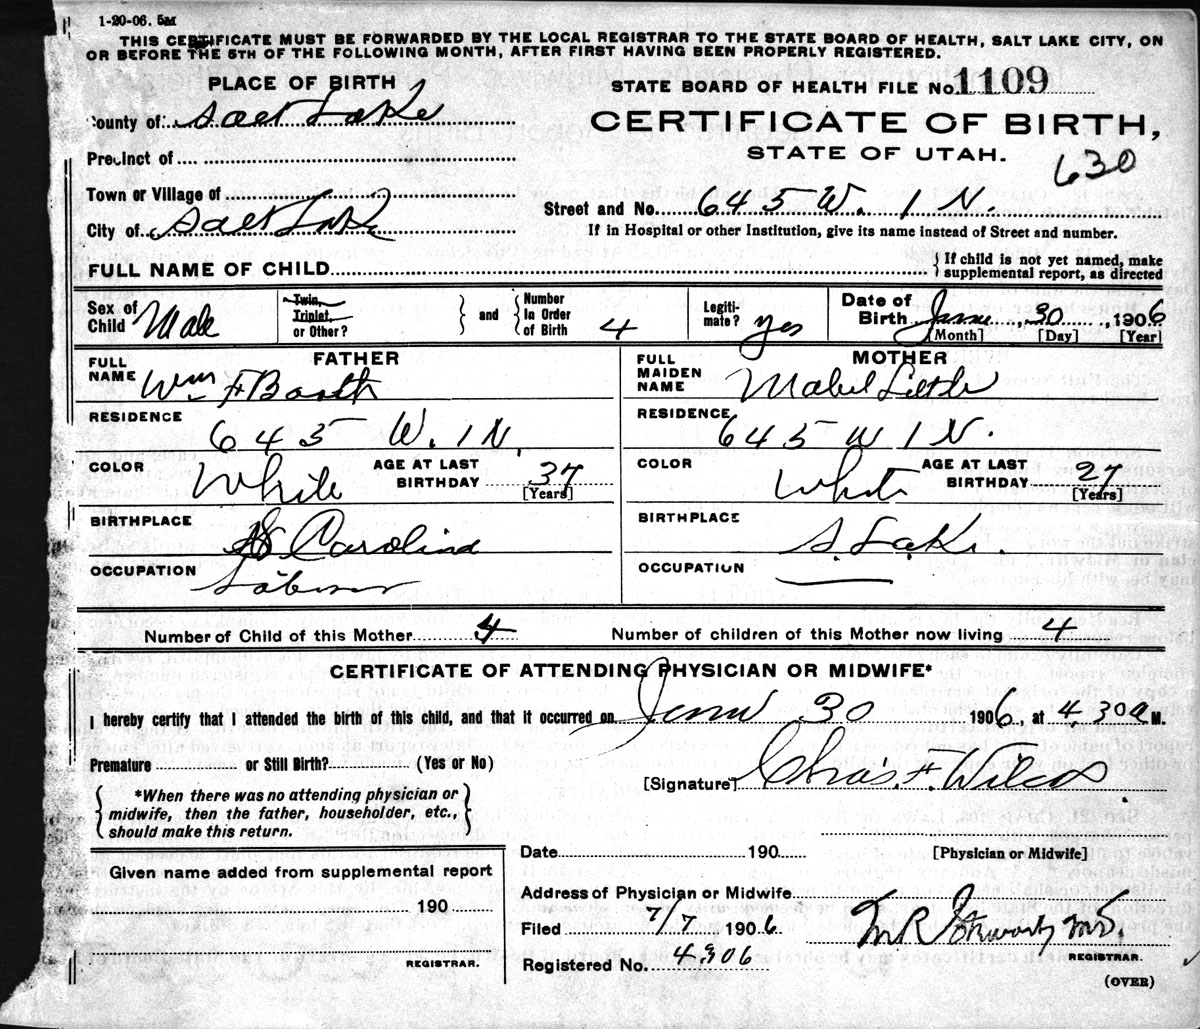 1-20-06. 5M
THIS CERTIFICATE MUST BE FORWARDED BY THE LOCAL REGISTRAR TO THE STATE BOARD OF HEALTH, SALT LAKE CITY, ON
OR BEFORE THE 5TH OF THE FOLLOWING MONTH, AFTER FIRST HAVING BEEN PROPERLY REGISTERED.
PLACE OF BIRTH
STATE BOARD OF HEALTH FILE No. 1109
County of Salt Lake
CERTIFICATE OF BIRTH,
Precinct of
STATE OF UTAH.
630
Town or Village of
Street and No. 645 W. 1 N.
City of Salt Lake
If in Hospital or other Institution, give its name instead of Street and number.
FULL NAME OF CHILD
If child is not yet named, make
supplemental report, as directed
Sex of Child Male
Twin, Triplet, or Other?
and
Number In Order of Birth 4
Legiti-mate? yes
Date of Birth 30, 1906
[Month] [Day] [Year]
FATHER
MOTHER
FULL NAME Wm F
FULL MAIDEN NAME Mabel Little
RESIDENCE 645 W. 1 N.
RESIDENCE 645 W 1 N.
COLOR White
AGE AT LAST BIRTHDAY 37 [Years]
COLOR White
AGE AT LAST BIRTHDAY 27 [Years]
BIRTHPLACE Carolina
BIRTHPLACE S. Lake.
OCCUPATION Laborer
OCCUPATION
Number of Child of this Mother 4
Number of children of this Mother now living 4
CERTIFICATE OF ATTENDING PHYSICIAN OR MIDWIFE*
I hereby certify that I attended the birth of this child, and that it occurred on 30 1906, at 4.30 a M.
Premature or Still Birth? (Yes or No)
[Signature] Chas. F. Wilcox.
*When there was no attending physician or
midwife, then the father, householder, etc.,
should make this return.
Date 190
[Physician or Midwife]
Given name added from supplemental report
190
REGISTRAR.
Address of Physician or Midwife
Filed 7/7 1906
M.D.
Registered No. 4306
REGISTRAR.
(OVER)